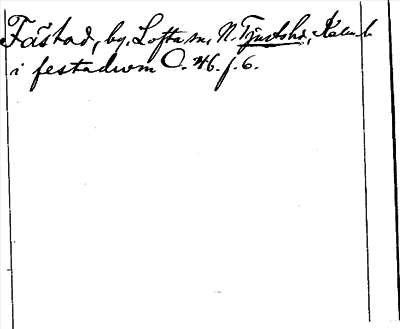 Fästad, by, Lofta sn, N. Tjusts hd, Kalm. l.
i festadum O. 46. f. 6.